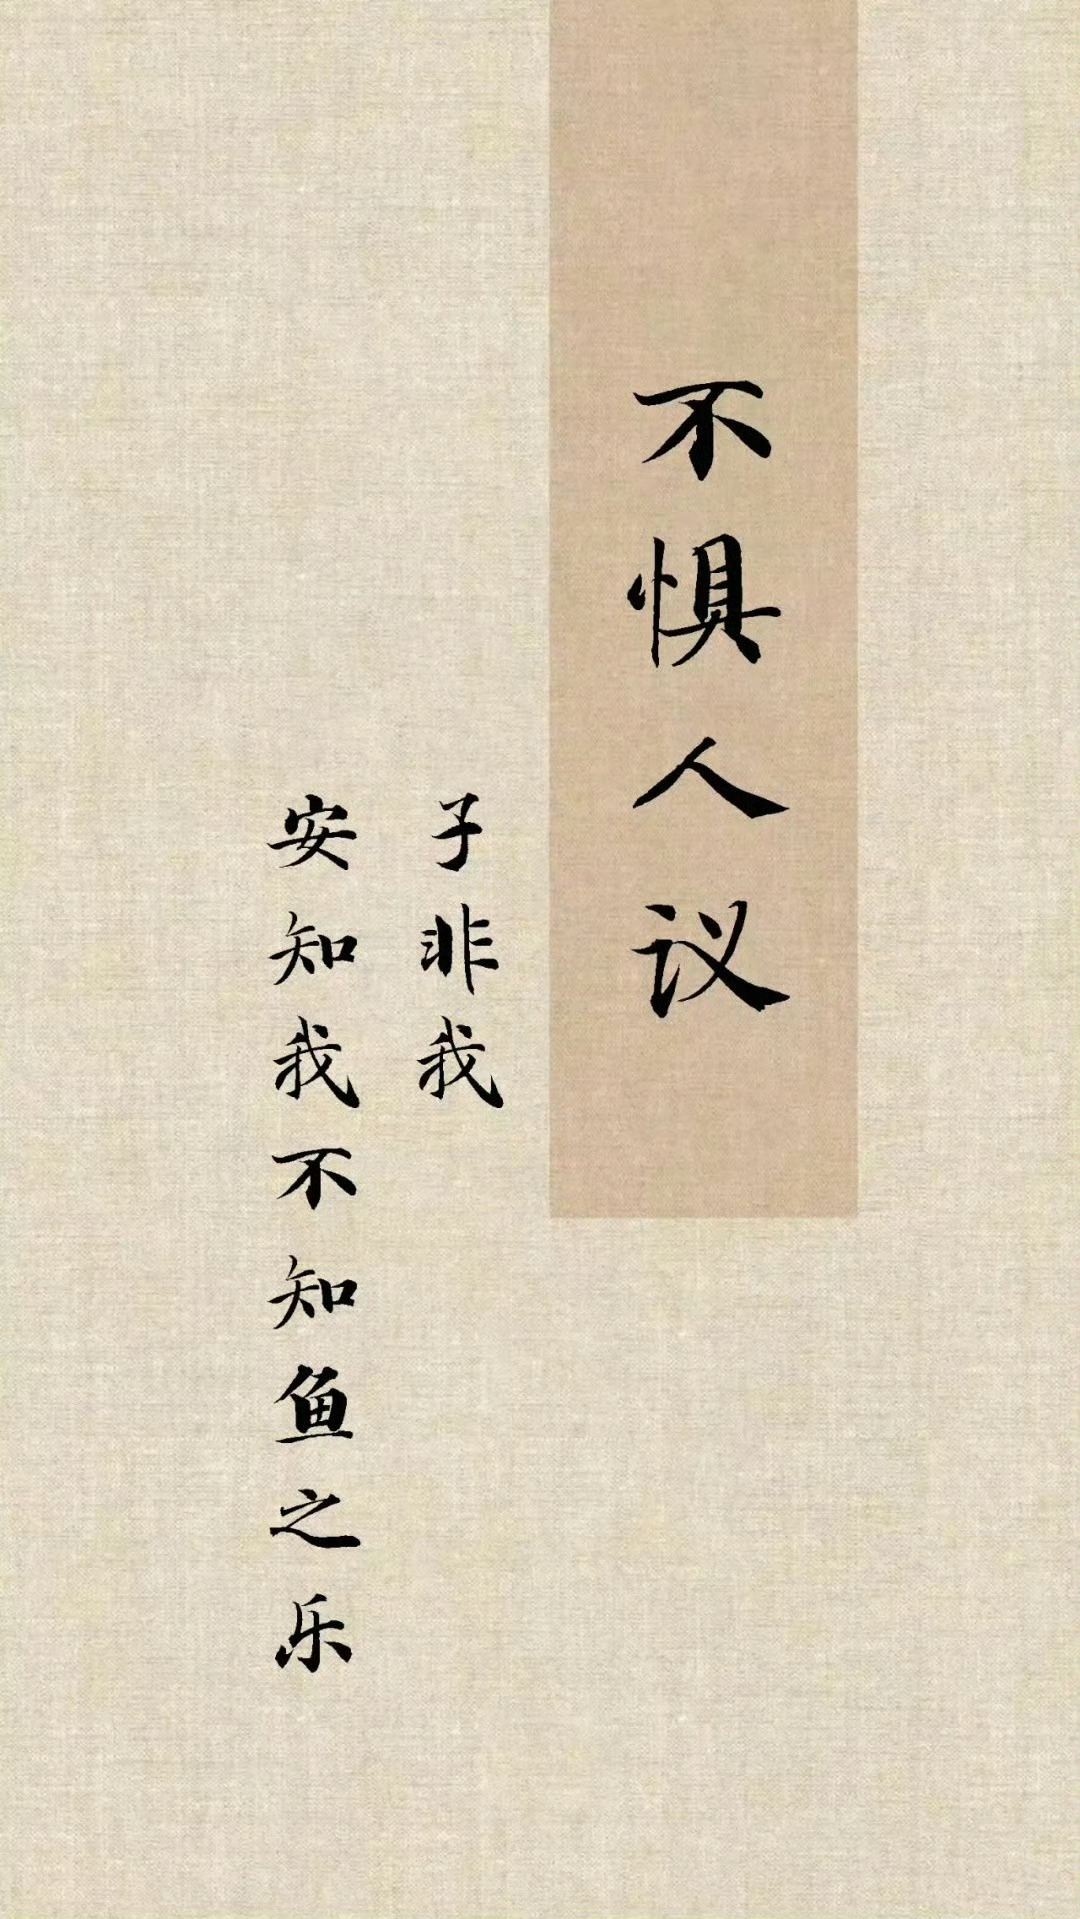 不惧人议
子非我
安知我不知鱼之乐